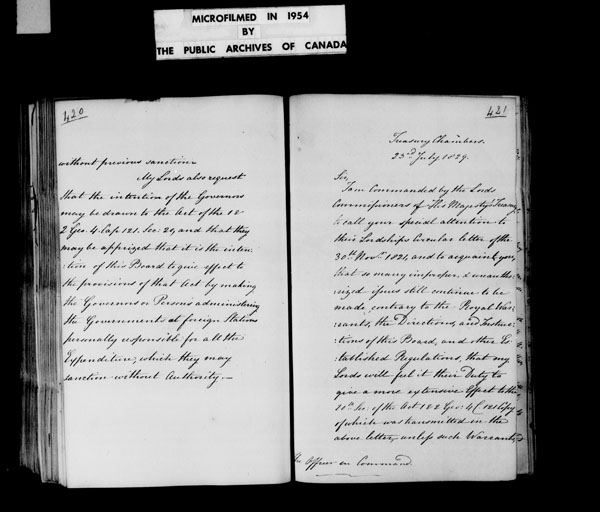 MICROFILMED IN 1954
BY
THE PUBLIC ARCHIVES OF CANADA
420
without previous sanction.
My Lords also request
that the intention of the Governors
may be drawn to the Act of the 1 &
2 Geo. 4. Cap 121. Sec: 29, and that they
may be apprized that it is the inten-
:tion of this Board to give effect to
the provisions of that Act by making
the Governors or Persons administering
the Governments at foreign Stations
personally responsible for all the
Expenditure, which they may
sanction without Authority.
421
Treasury Chambers.
23rd July 1829.
Sir,
I am Commanded by the Lords
Commissioners of His Majesty's Treasy
to call your special attention to
their Lordships Circular letter of the
30th Novr 1821, and to acquaint you,
that so many improper, & unautho-
rized Issues still continue to be
made contrary to the Royal War-
:rants, the Directions, and Instruc-
:tions of this Board, and other Es-
:tablished Regulations, that my
Lords will feel it their Duty to
give a more extensive Effect to the
Sec: of the Act 1 & 2 Geo: 4 C 121 (Copy
of which was transmitted in the
above letter, unless such Warrants,
The Officer in Command.